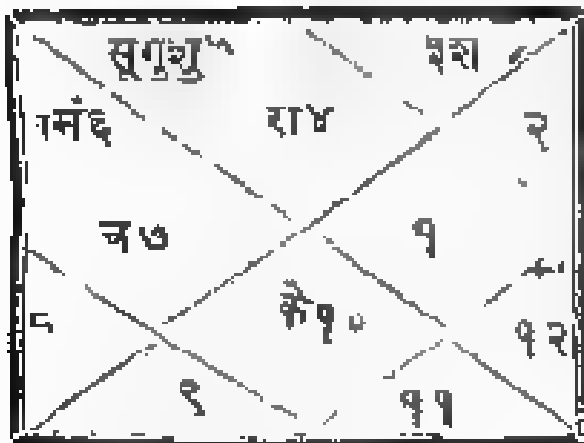 सूगुशु ३श
मं६ रा४ २
च७ १
८ के१० १२
९ ११